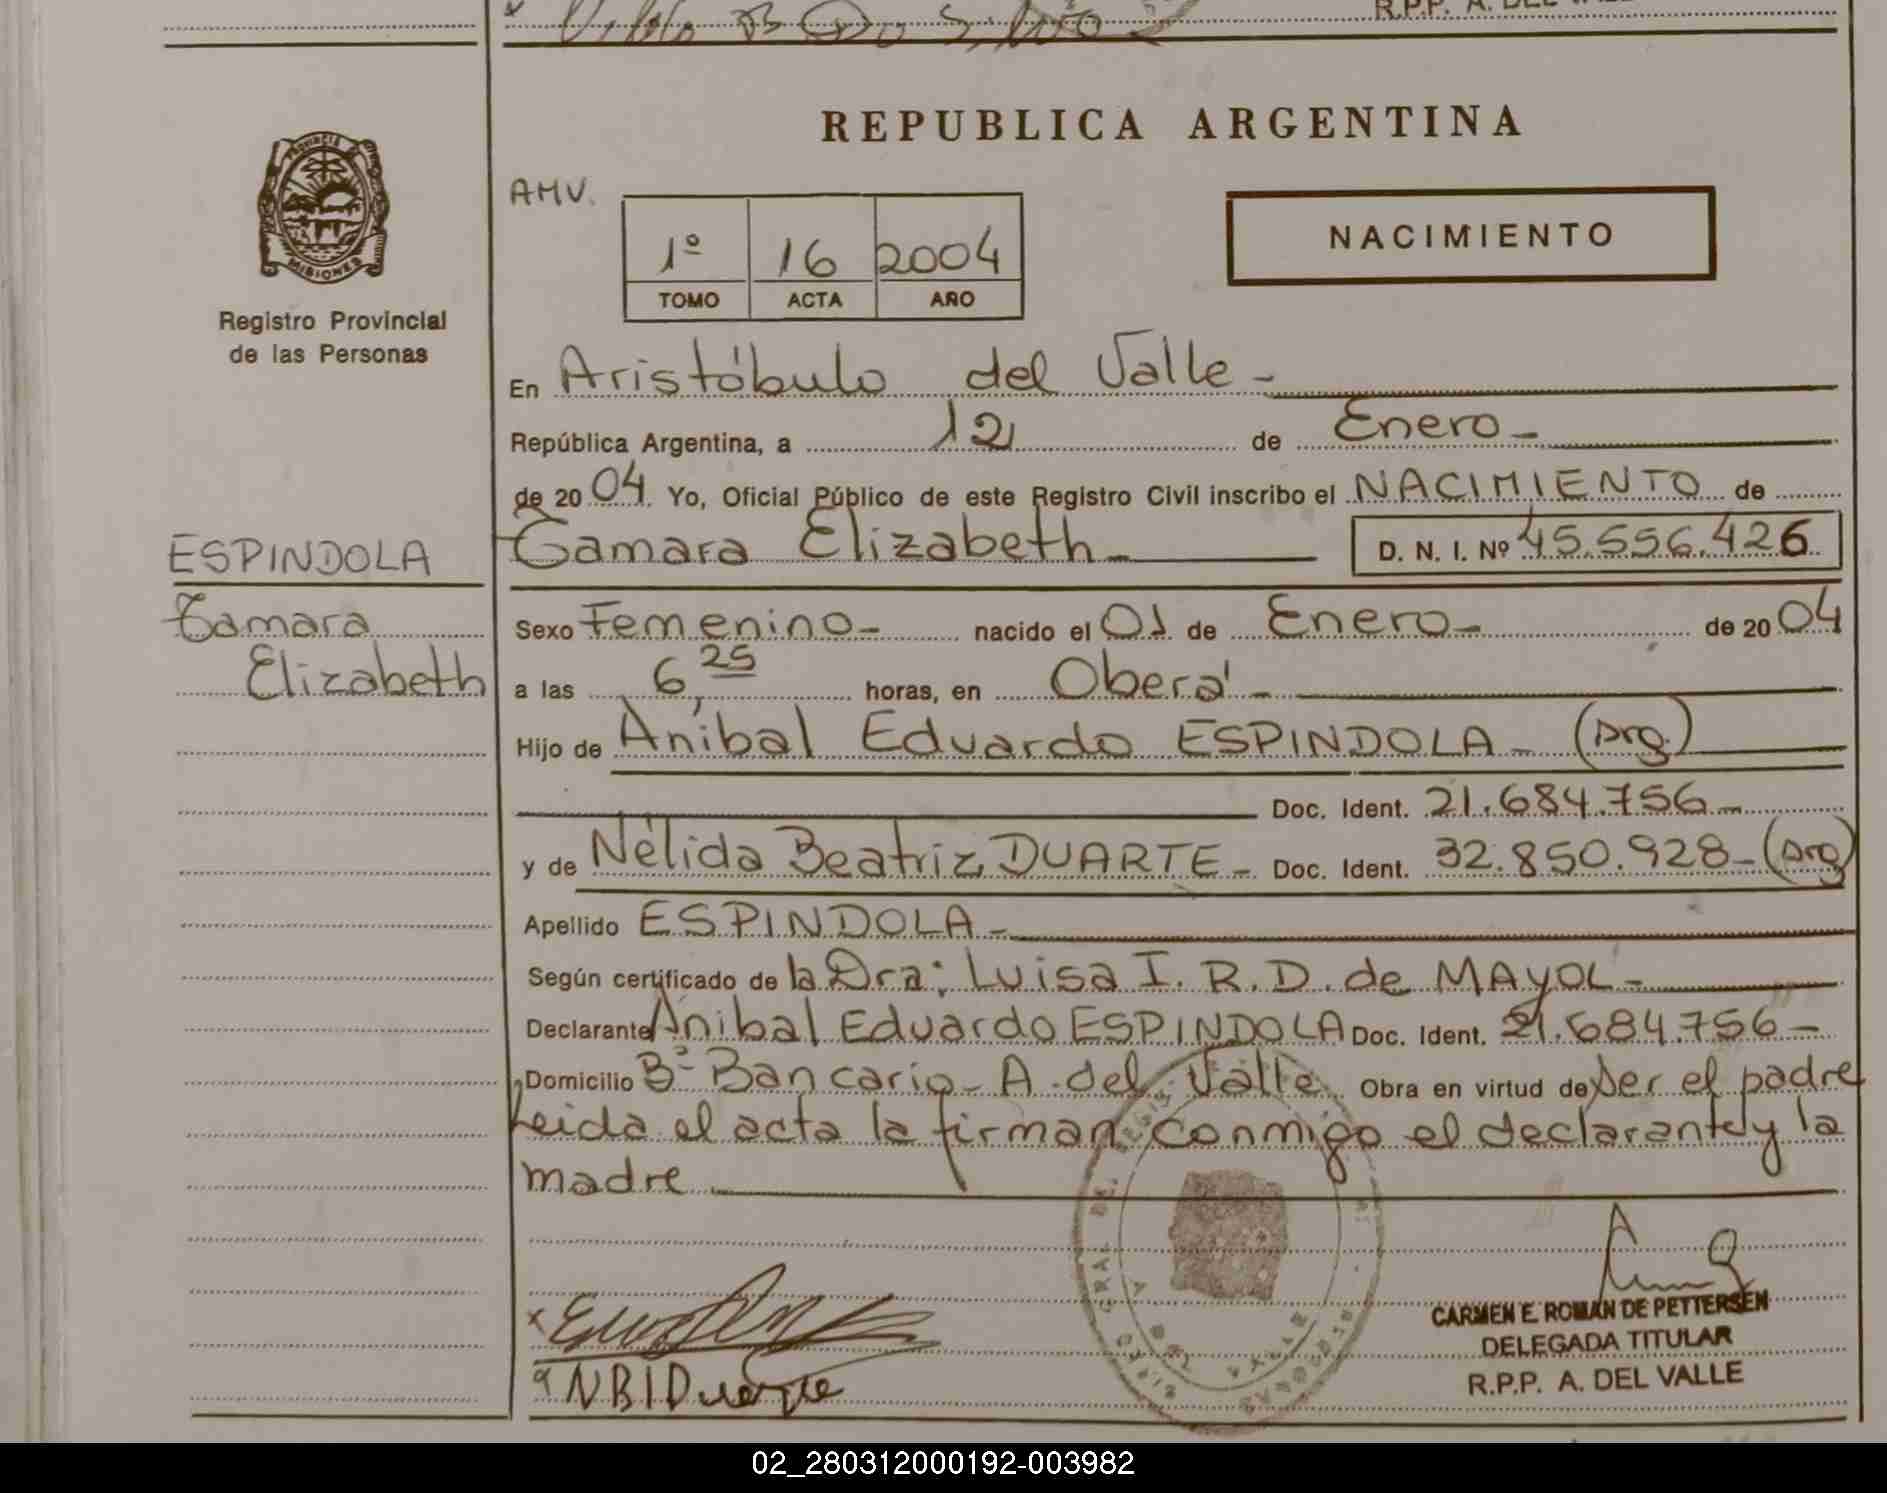 R.P.P. A. DEL VALLE
REPUBLICA ARGENTINA
PROVINCIA DE MISIONES
Registro Provincial
de las Personas
AMV.
1º 16 2004
TOMO ACTA AÑO
NACIMIENTO
En Aristóbulo del Valle -
República Argentina, a 12 de Enero -
de 2004 Yo, Oficial Público de este Registro Civil inscribo el NACIMIENTO de
ESPINDOLA
Tamara
Elizabeth
Tamara Elizabeth - D. N. I. Nº 45.556.426
Sexo Femenino - nacido el 01 de Enero - de 2004
a las 6,25 horas, en Oberá -
Hijo de Aníbal Eduardo ESPINDOLA - (Arg)
Doc. Ident. 21.684.756 -
y de Nélida Beatriz DUARTE - Doc. Ident. 32.850.928 - (Arg)
Apellido ESPINDOLA -
Según certificado de la Dra: Luisa I. R. D. de MAYOL -
Declarante Aníbal Eduardo ESPINDOLA Doc. Ident. 21.684.756 -
Domicilio Bº Bancario - A. del Valle Obra en virtud de ser el padre
Leida el acta la firman conmigo el declarante y la
madre
CARMEN E. ROMAN DE PETTERSEN
DELEGADA TITULAR
R.P.P. A. DEL VALLE
x
N B I Duarte
02_280312000192-003982